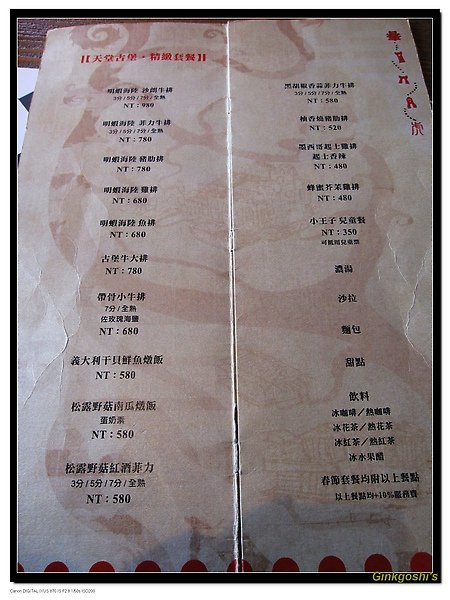 【天堂古堡・精緻套餐】
明蝦海陸 沙朗牛排
3分/5分/7分/全熟
NT：980
明蝦海陸 菲力牛排
3分/5分/7分/全熟
NT：780
明蝦海陸 豬肋排
NT：780
明蝦海陸 雞排
NT：680
明蝦海陸 魚排
NT：680
古堡牛大排
NT：780
帶骨小牛排
7分/全熟
佐玫瑰海鹽
NT：680
義大利干貝鮮魚燉飯
NT：580
松露野菇南瓜燉飯
蛋奶素
NT：580
松露野菇紅酒菲力
3分/5分/7分/全熟
NT：580
黑胡椒香蒜菲力牛排
3分/5分/7分/全熟
NT：580
柚香燒豬肋排
NT：520
墨西哥起士雞排
起士香辣
NT：480
蜂蜜芥茉雞排
NT：480
小王子兒童餐
NT：350
可抵用兒童票
濃湯
沙拉
麵包
甜點
飲料
冰咖啡／熱咖啡
冰花茶／熱花茶
冰紅茶／熱紅茶
冰水果醋
春節套餐均附以上餐點
以上餐點均+10%服務費
Ginkgoshi's